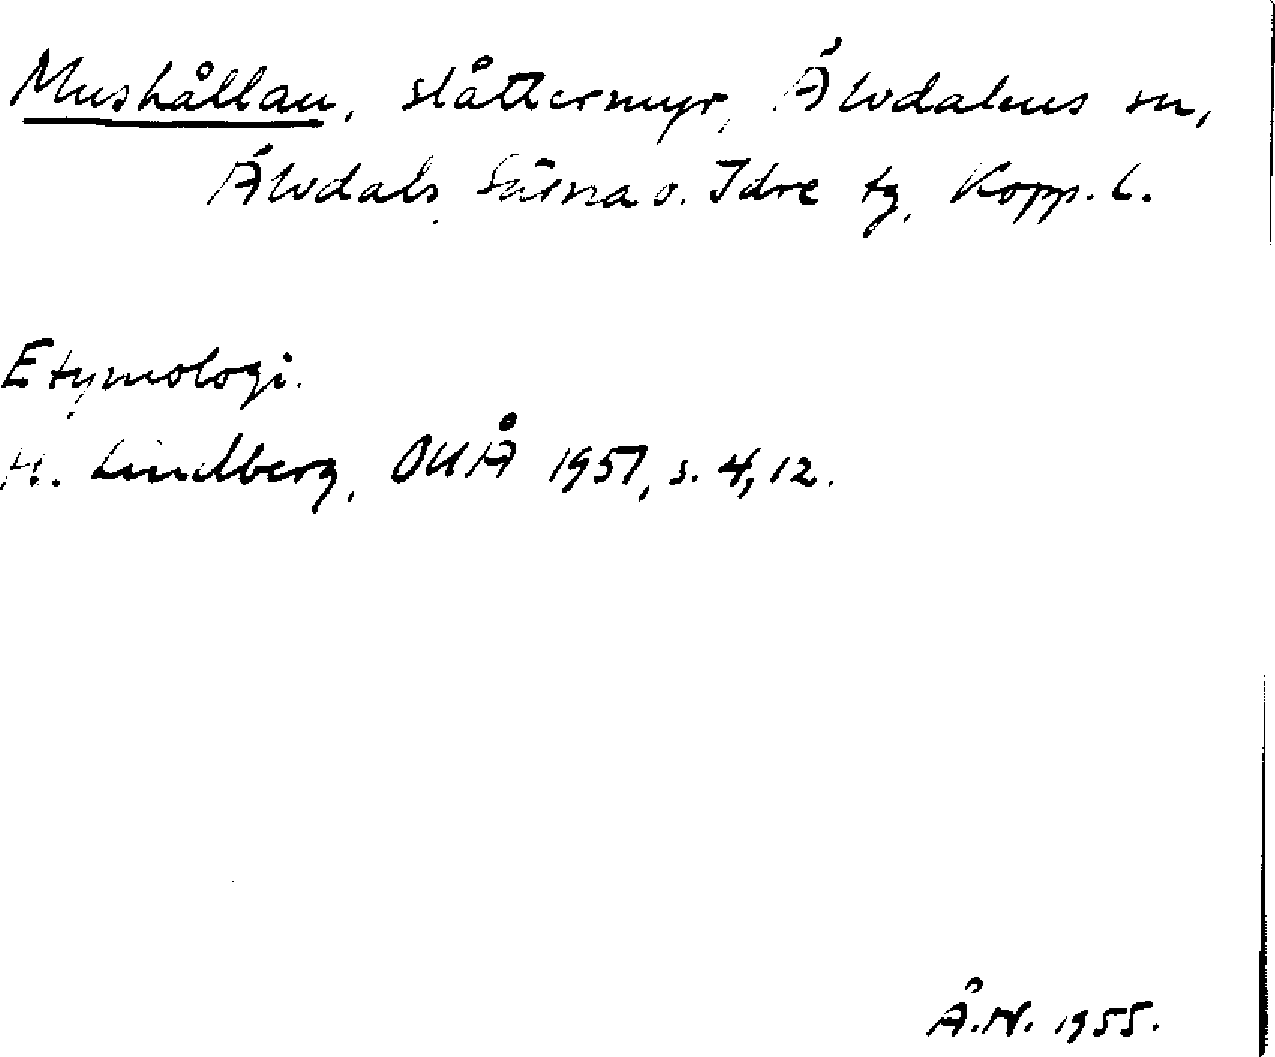 Mushållan, slåttermyr, Älvdalens sn,
Älvdals, Särna o. Idre tg, Kopp. l.
Etymologi.
H. Lindberg, OUÅ 1951, s. 4, 12.
Å.N. 1955.